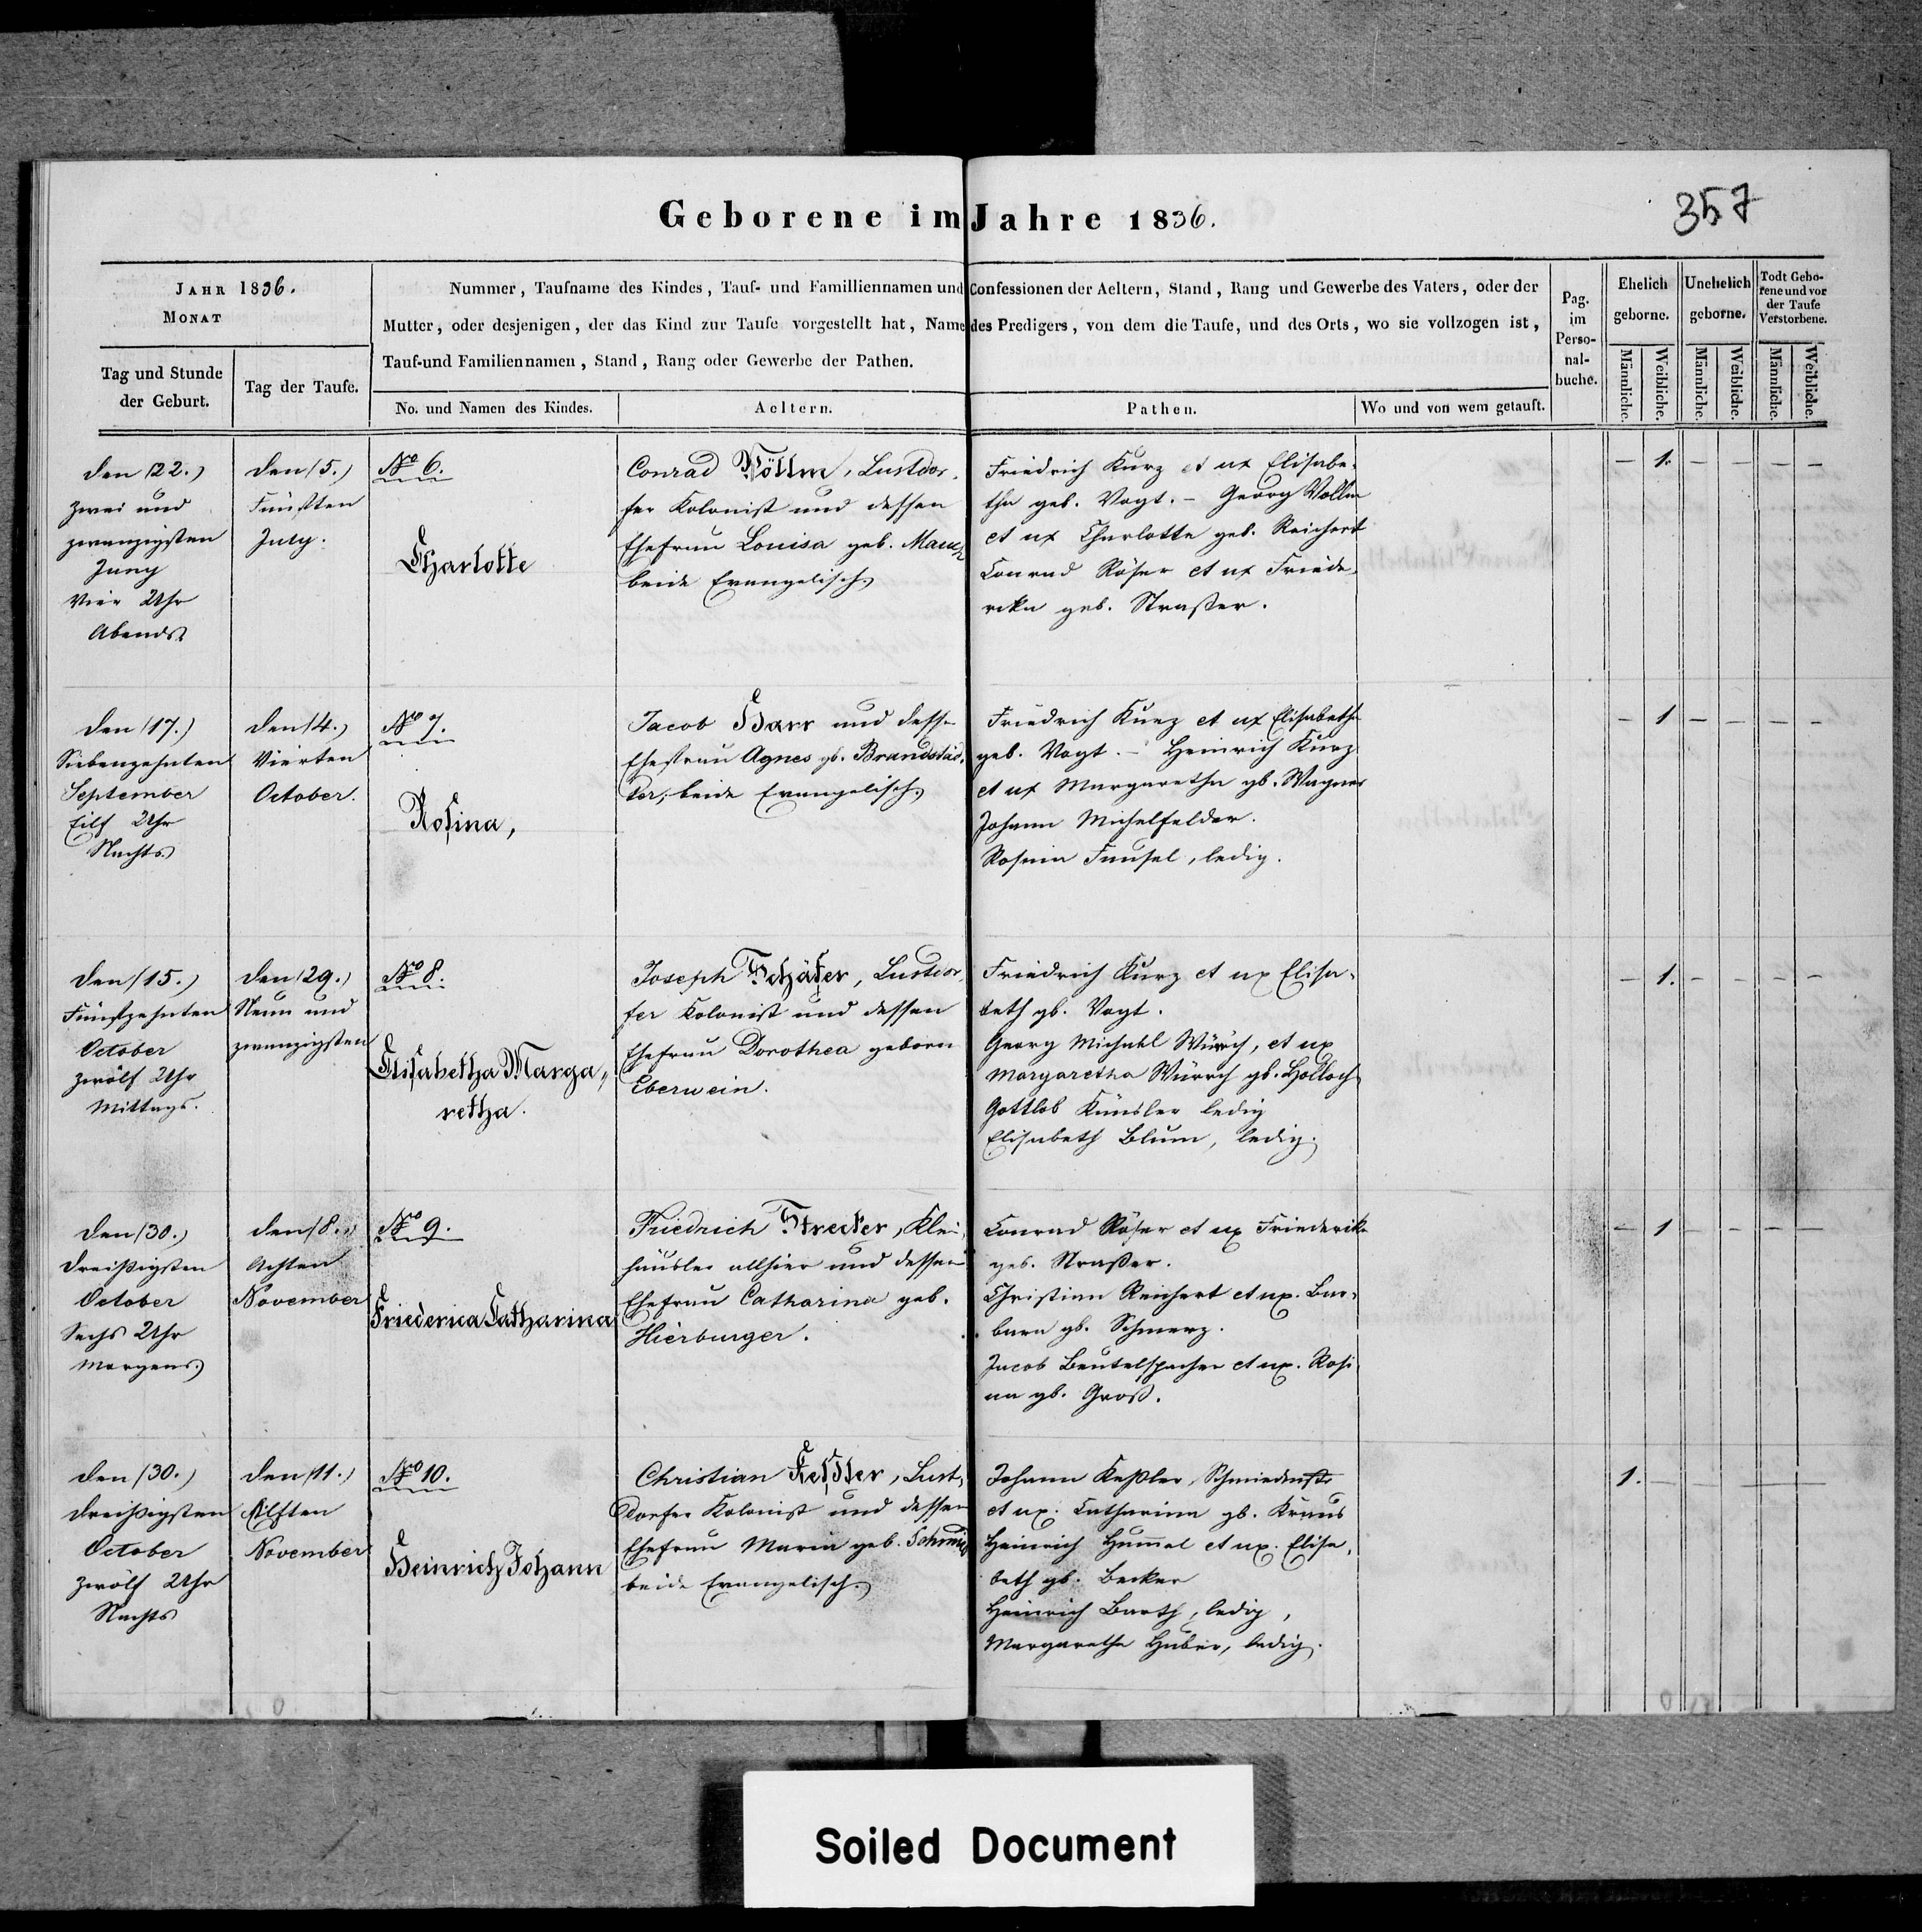 Geborene im Jahre 1836.
357
JAHR 1836.
MONAT
Tag und Stunde
der Geburt.
Tag der Taufe.
Nummer, Taufname des Kindes, Tauf- und Familliennamen und Confessionen der Aeltern, Stand, Rang und Gewerbe des Vaters, oder der
Mutter, oder desjenigen, der das Kind zur Taufe vorgestellt hat, Name des Predigers, von dem die Taufe, und des Orts, wo sie vollzogen ist,
Tauf-und Familiennamen, Stand, Rang oder Gewerbe der Pathen.
No. und Namen des Kindes.
Aeltern.
Pathen.
Wo und von wem getauft.
Pag.
im
Perso-
nal-
buche.
Ehelich
geborne.
Unehelich
geborne.
Todt Gebo-
rene und vor
der Taufe
Verstorbene.
Männliche.
Weibliche.
Männliche.
Weibliche.
Männliche.
Weibliche.
den (22.)
zwei und
zwanzigsten
Juny
Vier Uhr
Abends
den (5.)
Fünften
July.
No 6.
Charlotte
Conrad Völlm, Lustdor-
fer Kolonist und dessen
Ehefrau Louisa geb. Mauch
beide Evangelisch
Friedrich Kurz et ux Elisabe-
tha geb. Vogt. - Georg Vollm
et ux Charlotte geb. Reichert
Conrad Röser et ux Friede-
rika geb. Straßer.
– 1. – – – –
den (17.)
Siebenzehnten
September
Eilf Uhr
Nachts
den (4.)
Vierten
October.
No 7.
Rosina,
Jacob Harr und dessen
Ehefrau Agnes gb. Brandstäd-
ter, beide Evangelisch
Friedrich Kurz et ux Elisabetha
geb. Vogt. - Heinrich Kurz
et ux Margaretha gb. Wagner
Johann Michelfelder.
Rosina Fausel, ledig.
– 1 – – – –
den (15.)
Fünfzehnten
October
zwölf Uhr
Mittags.
den (29.)
Neun und
zwanzigsten
No 8.
Elisabetha Marga-
retha.
Joseph Schäfer, Lustdor-
fer Kolonist und dessen
Ehefrau Dorothea geborn
Eberwein.
Friedrich Kurz et ux Elisa-
beth gb. Vogt.
Georg Michael Würch, et ux
Margaretha Würch gb. Holloch
Gottlob Künsler ledig
Elisabeth Blum, ledig.
– 1. – – – –
den (30.)
dreißigsten
October
Sechs Uhr
Morgens
den (8.)
Achten
November
No 9.
Friederica Catharina
Friedrich Strecker, Klei-
häusler allhier und dessen
Ehefrau Catharina geb.
Hierburger.
Conrad Röser et ux Friederika
geb. Straßer.
Christian Reichert et ux. Bar-
bara gb. Schmerz.
Jacob Beutelspacher et ux. Rosi-
na gb. Groß.
– 1 – – – –
den (30.)
dreißigsten
October
zwölf Uhr
Nachts
den (11.)
Eilften
November
No 10.
Heinrich Johann
Christian Keßler, Lust-
dorfer Kolonist und dessen
Ehefrau Maria geb. Schmid
beide Evangelisch.
Johann Keßler, Schmiedmstr
et ux. Catharina gb. Kraus
Heinrich Hummel et ux. Elisa-
beth gb. Becker
Heinrich Barth, ledig,
Margaretha Huber, ledig.
1. – – – – –
Soiled Document